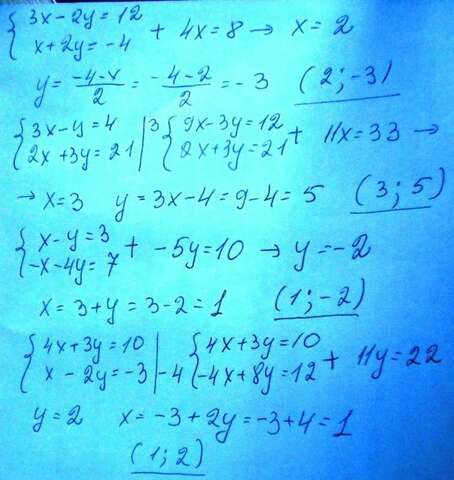 {3x-2y=12
x+2y=-4 + 4x=8 → x=2
y=\frac{-4-x}{2}=\frac{-4-2}{2}=-3 (2;-3)
{3x-y=4 |3 {9x-3y=12
2x+3y=21 | 2x+3y=21 + 11x=33 →
→ x=3 y=3x-4=9-4=5 (3;5)
{x-y=3
-x-4y=7 + -5y=10 → y=-2
x=3+y=3-2=1 (1;-2)
{4x+3y=10 | {4x+3y=10
x-2y=-3 |-4 -4x+8y=12 + 11y=22
y=2 x=-3+2y=-3+4=1
(1;2)